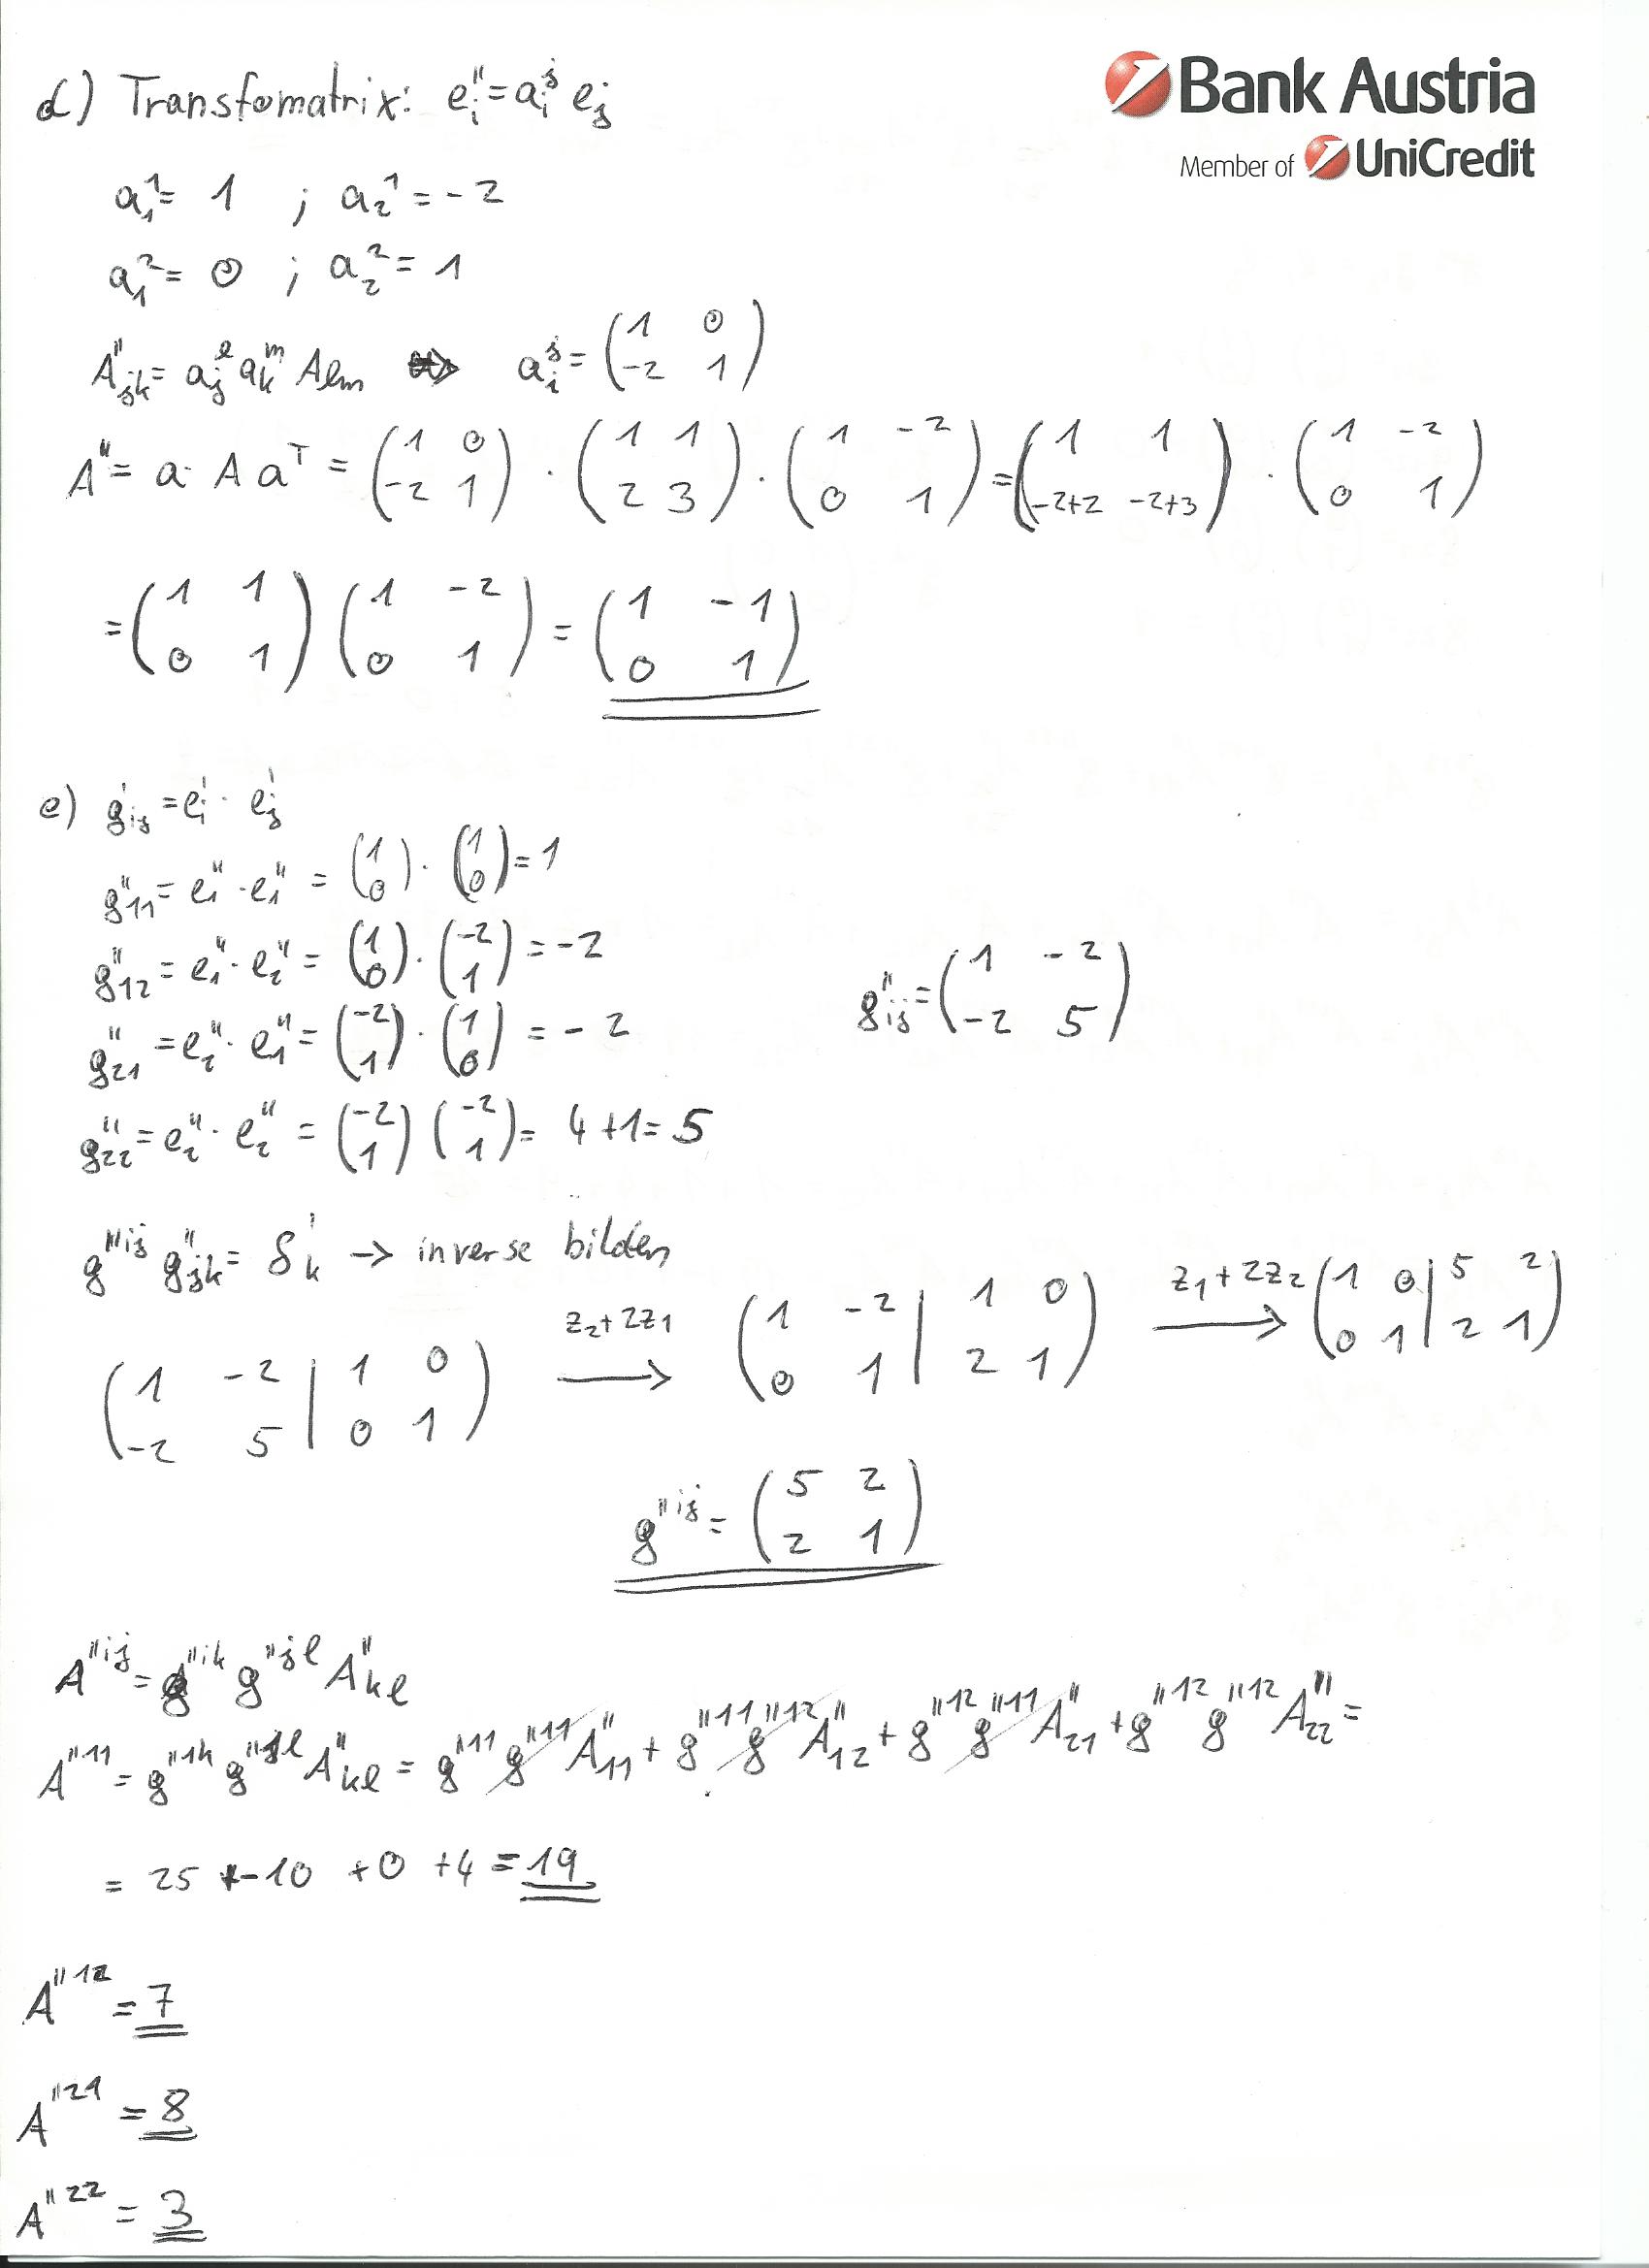 Bank Austria
Member of UniCredit
d) Transfomatrix: e''_i = a_i^j e_j
a_1^1 = 1 ; a_2^1 = -2
a_1^2 = 0 ; a_2^2 = 1
A''_jk = a_j^l a_k^m A_lm => a_i^j = (1 0 / -2 1)
A'' = a · A a^T = (1 0 / -2 1) · (1 1 / 2 3) · (1 -2 / 0 1) = (1 1 / -2+2 -2+3) · (1 -2 / 0 1)
= (1 1 / 0 1) (1 -2 / 0 1) = (1 -1 / 0 1)
e) g'_ij = e'_i · e'_j
g''_11 = e''_1 · e''_1 = (1 / 0) · (1 / 0) = 1
g''_12 = e''_1 · e''_2 = (1 / 0) · (-2 / 1) = -2
g''_ij = (1 -2 / -2 5)
g''_21 = e''_2 · e''_1 = (-2 / 1) · (1 / 0) = -2
g''_22 = e''_2 · e''_2 = (-2 / 1) (-2 / 1) = 4+1 = 5
g''^ij g''_jk = δ^i_k → inverse bilden
(1 -2 | 1 0 / -2 5 | 0 1) z_2+2z_1 → (1 -2 | 1 0 / 0 1 | 2 1) z_1+2z_2 → (1 0 | 5 2 / 0 1 | 2 1)
g''^ij = (5 2 / 2 1)
A''^ij = g''^ik g''^jl A''_kl
A''^11 = g''^1k g''^1l A''_kl = g''^11 g''^11 A''_11 + g''^11 g''^12 A''_12 + g''^12 g''^11 A''_21 + g''^12 g''^12 A''_22 =
= 25 -10 +0 +4 = 19
A''^12 = 7
A''^21 = 8
A''^22 = 3